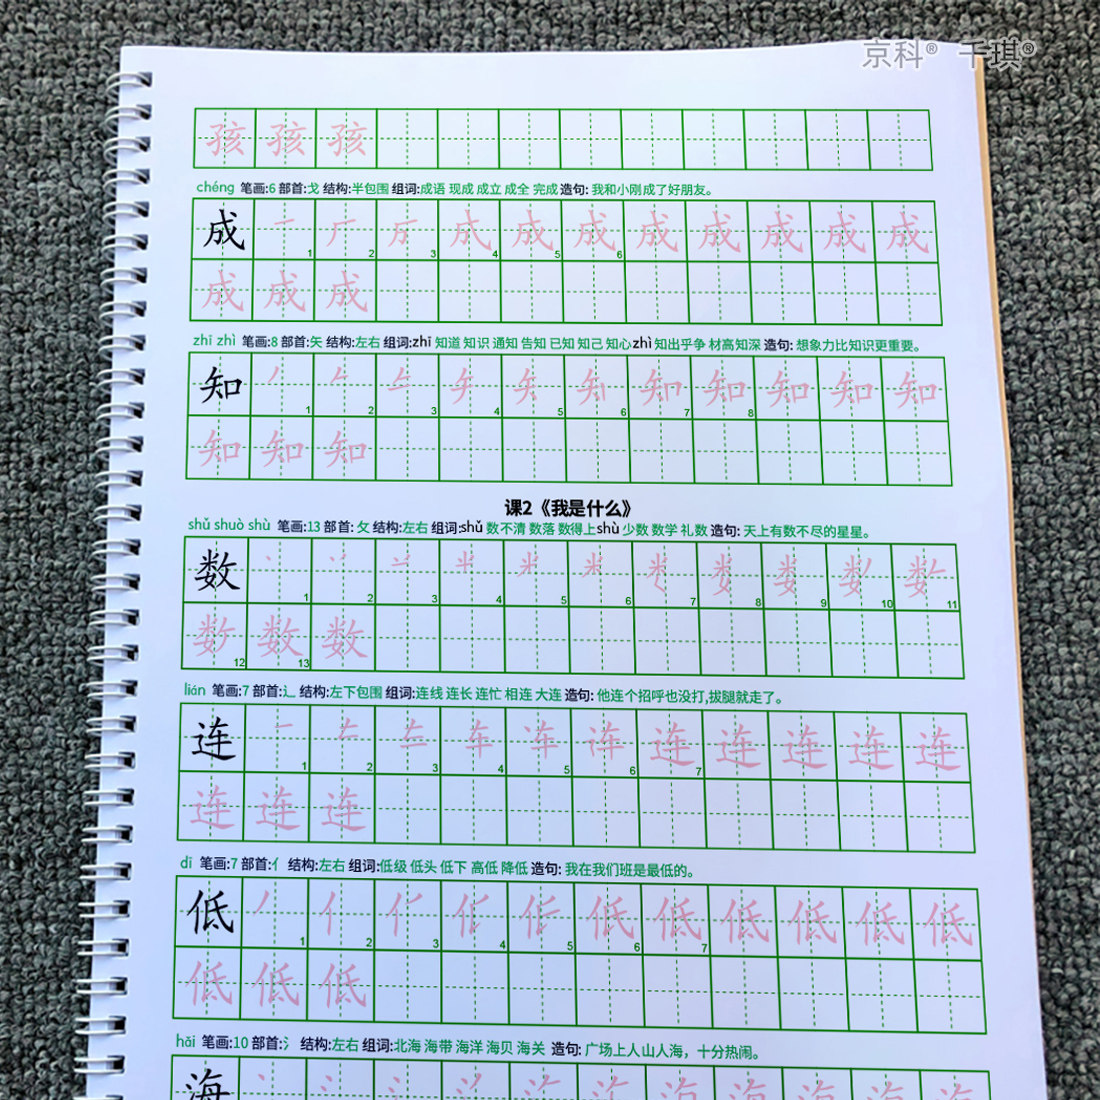 京科® 千琪®
孩 孩 孩
chéng 笔画:6 部首:戈 结构:半包围 组词:成语 现成 成立 成全 完成 造句: 我和小刚成了好朋友。
成 1 2 3 4 成 5 成 6 成 成 成 成 成
成 成 成
zhī zhì 笔画:8 部首:矢 结构:左右 组词:zhī 知道 知识 通知 告知 已知 知己 知心 zhì 知出乎争 材高知深 造句: 想象力比知识更重要。
知 1 2 3 4 5 6 知 7 知 8 知 知 知
知 知 知
课2《我是什么》
shǔ shuò shù 笔画:13 部首: 攵 结构:左右 组词:shǔ 数不清 数落 数得上 shù 少数 数学 礼数 造句: 天上有数不尽的星星。
数 1 2 3 4 5 6 7 8 9 10 11
数 12 数 13 数
lián 笔画:7 部首:辶 结构:左下包围 组词:连线 连长 连忙 相连 大连 造句: 他连个招呼也没打,拔腿就走了。
连 1 2 3 4 5 6 连 7 连 连 连 连
连 连 连
dī 笔画:7 部首:亻 结构:左右 组词:低级 低头 低下 高低 降低 造句: 我在我们班是最低的。
低 1 2 3 4 5 低 6 低 7 低 低 低 低
低 低 低
hǎi 笔画:10 部首:氵 结构:左右 组词:北海 海带 海洋 海贝 海关 造句: 广场上人山人海，十分热闹。
海